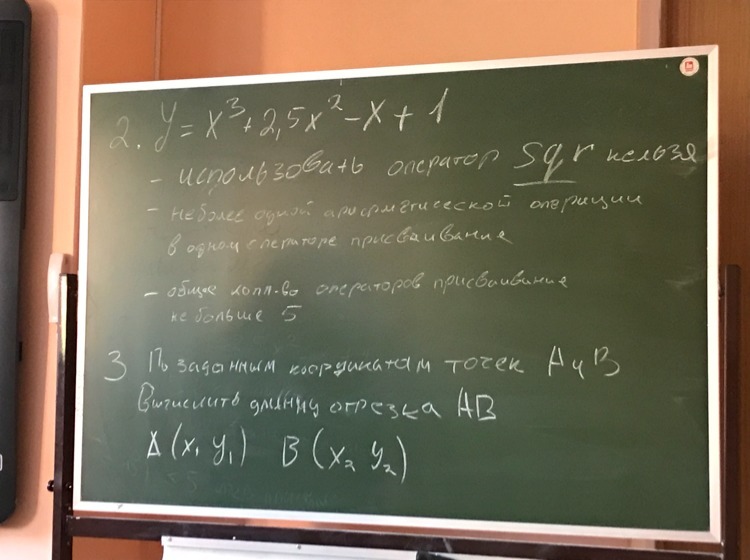 2. y = x³ + 2,5x² - x + 1
- использовать оператор sqr нельзя
- не более одной арифметической операции
в одном операторе присваивание
- общее колл-во операторов присваивание
не больше 5
3 По заданным координатам точек А и В
Вычислить длинну отрезка АВ
A (x₁ y₁) B (x₂ y₂)